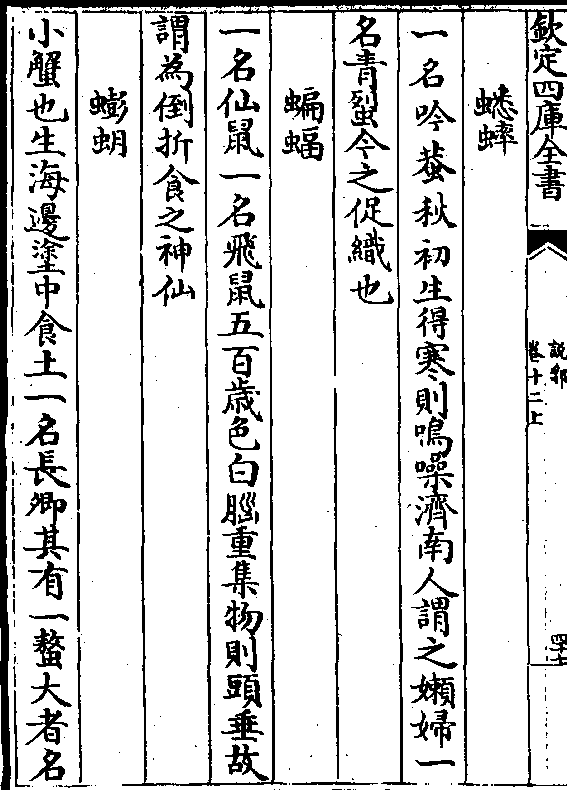 欽定四庫全書
說郛
卷十二上
蟋蟀
一名吟蛬秋初生得寒則鳴噪濟南人謂之嬾婦一
名青蛚今之促織也
蝙蝠
一名仙鼠一名飛鼠五百歲色白腦重集物則頭垂故
謂為倒折食之神仙
蟛蚏
小蟹也生海邊塗中食土一名長卿其有一螯大者名